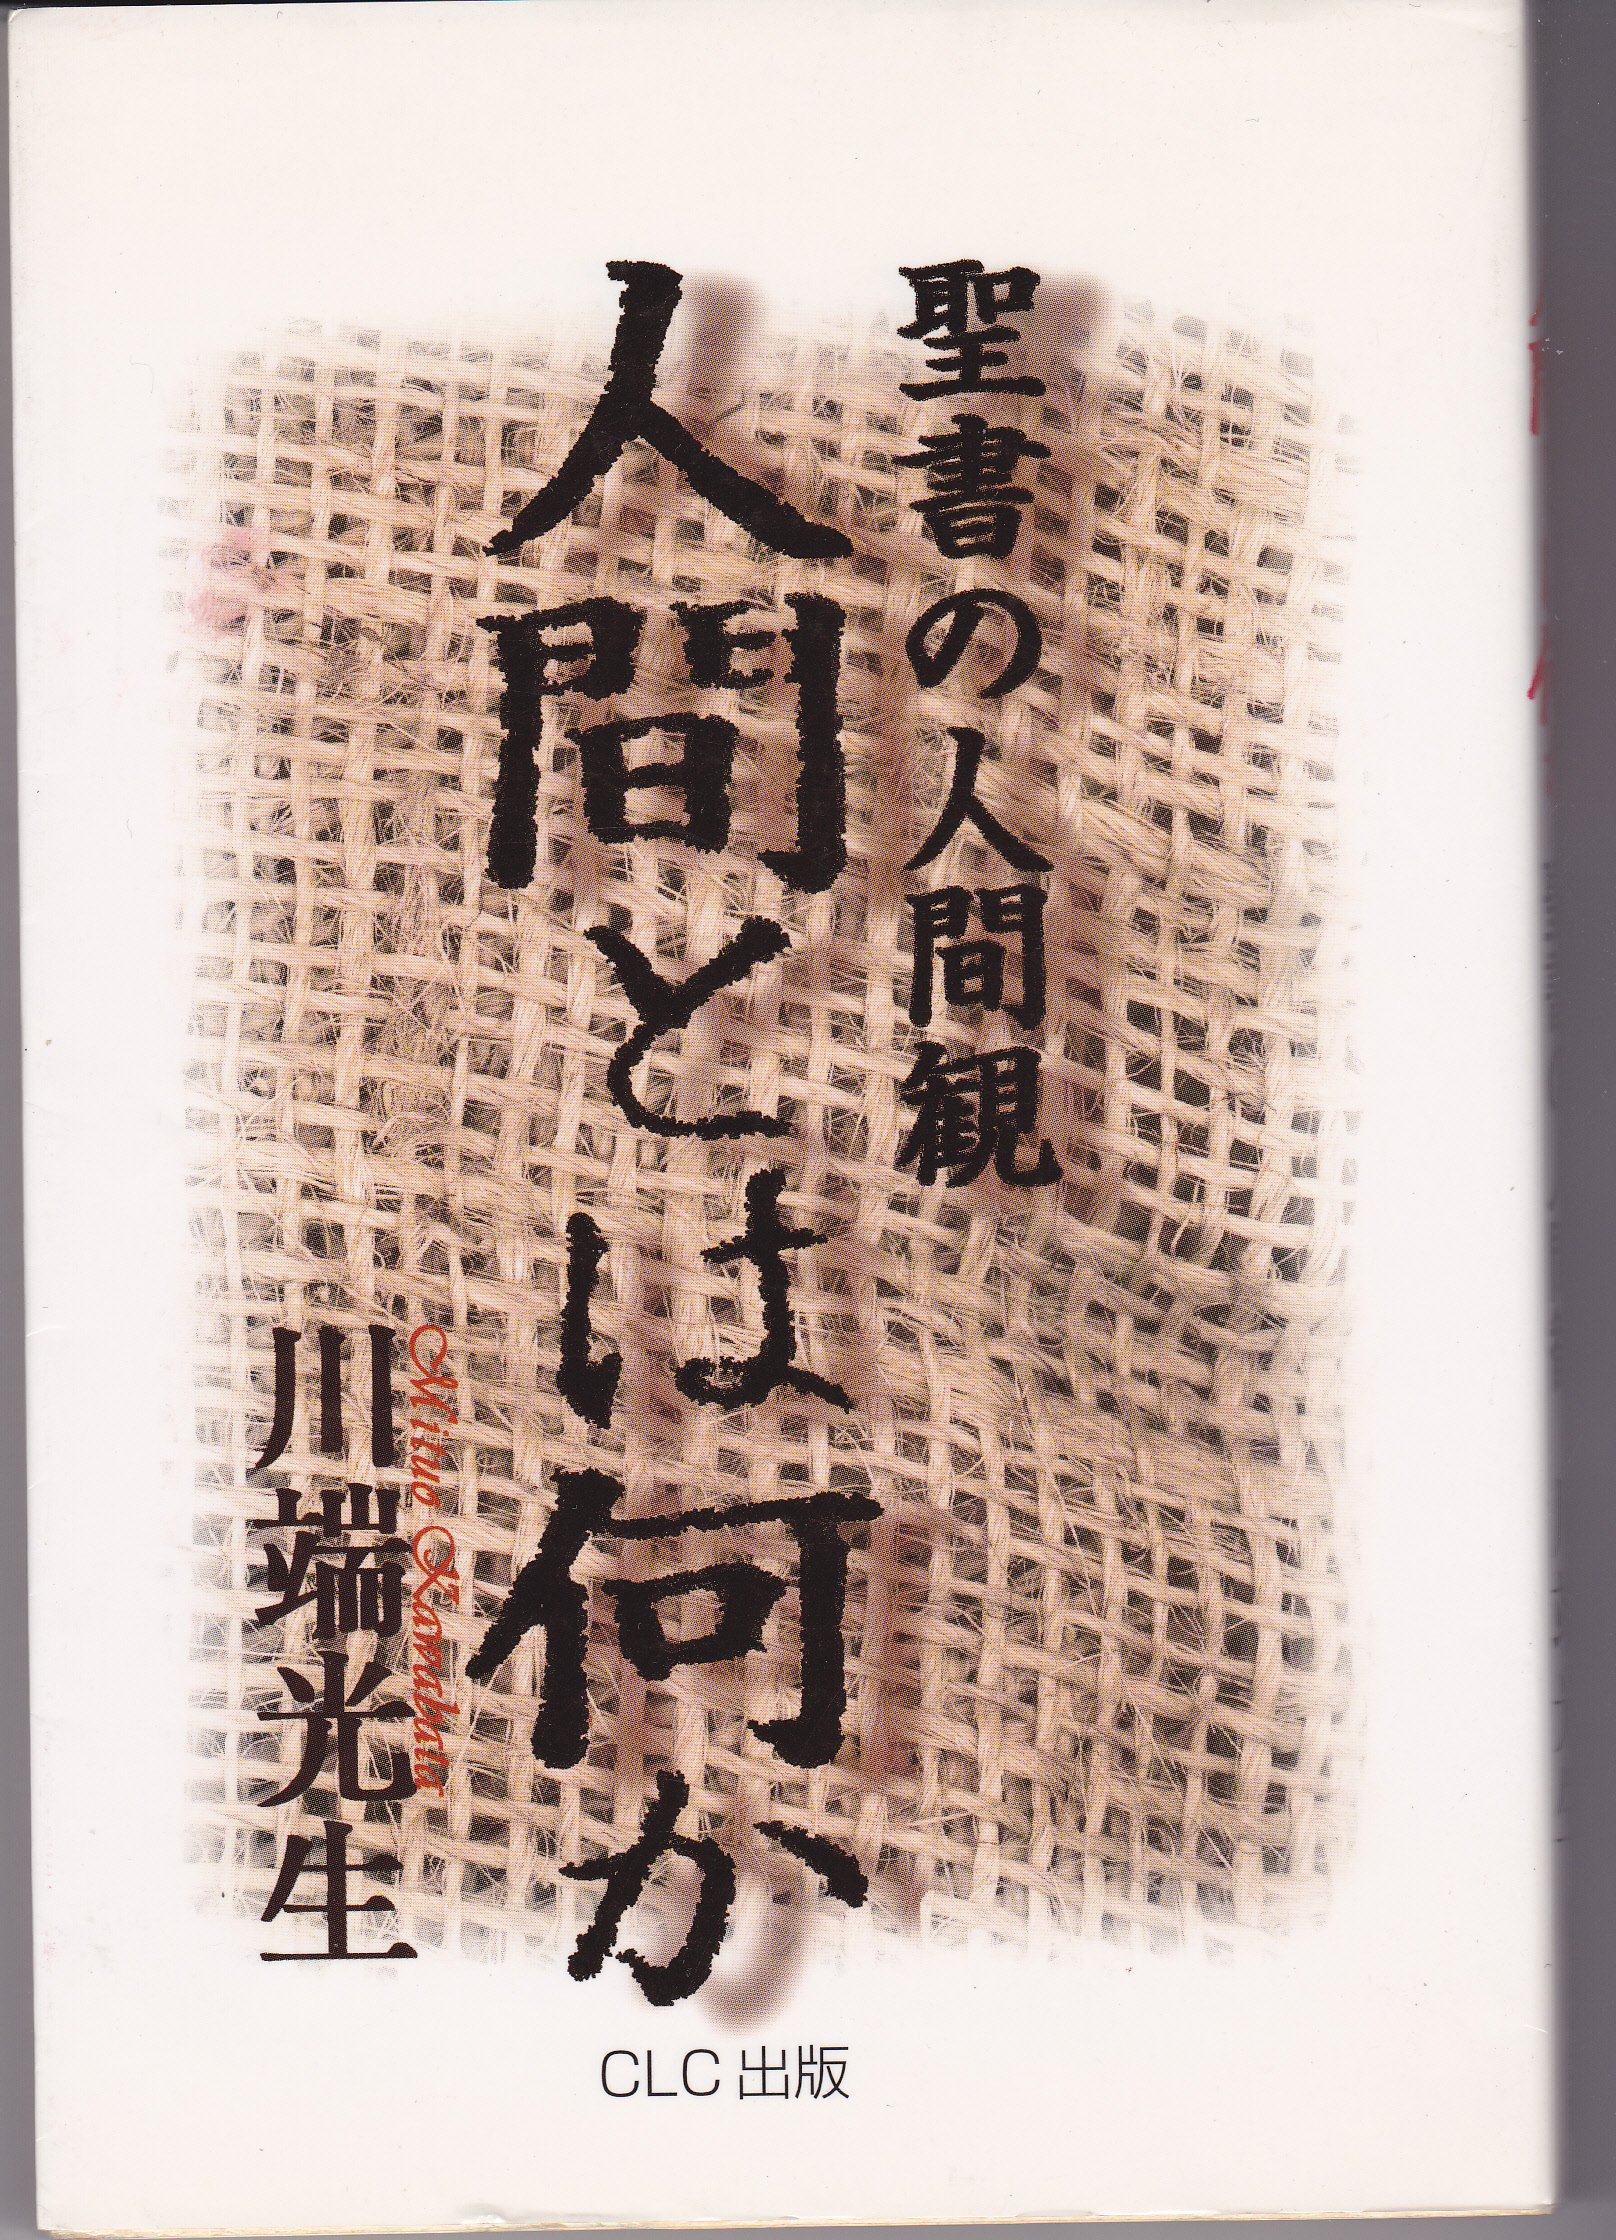 聖書の人間観
人間とは何か
Mituo Kawabata
川端光生
CLC 出版